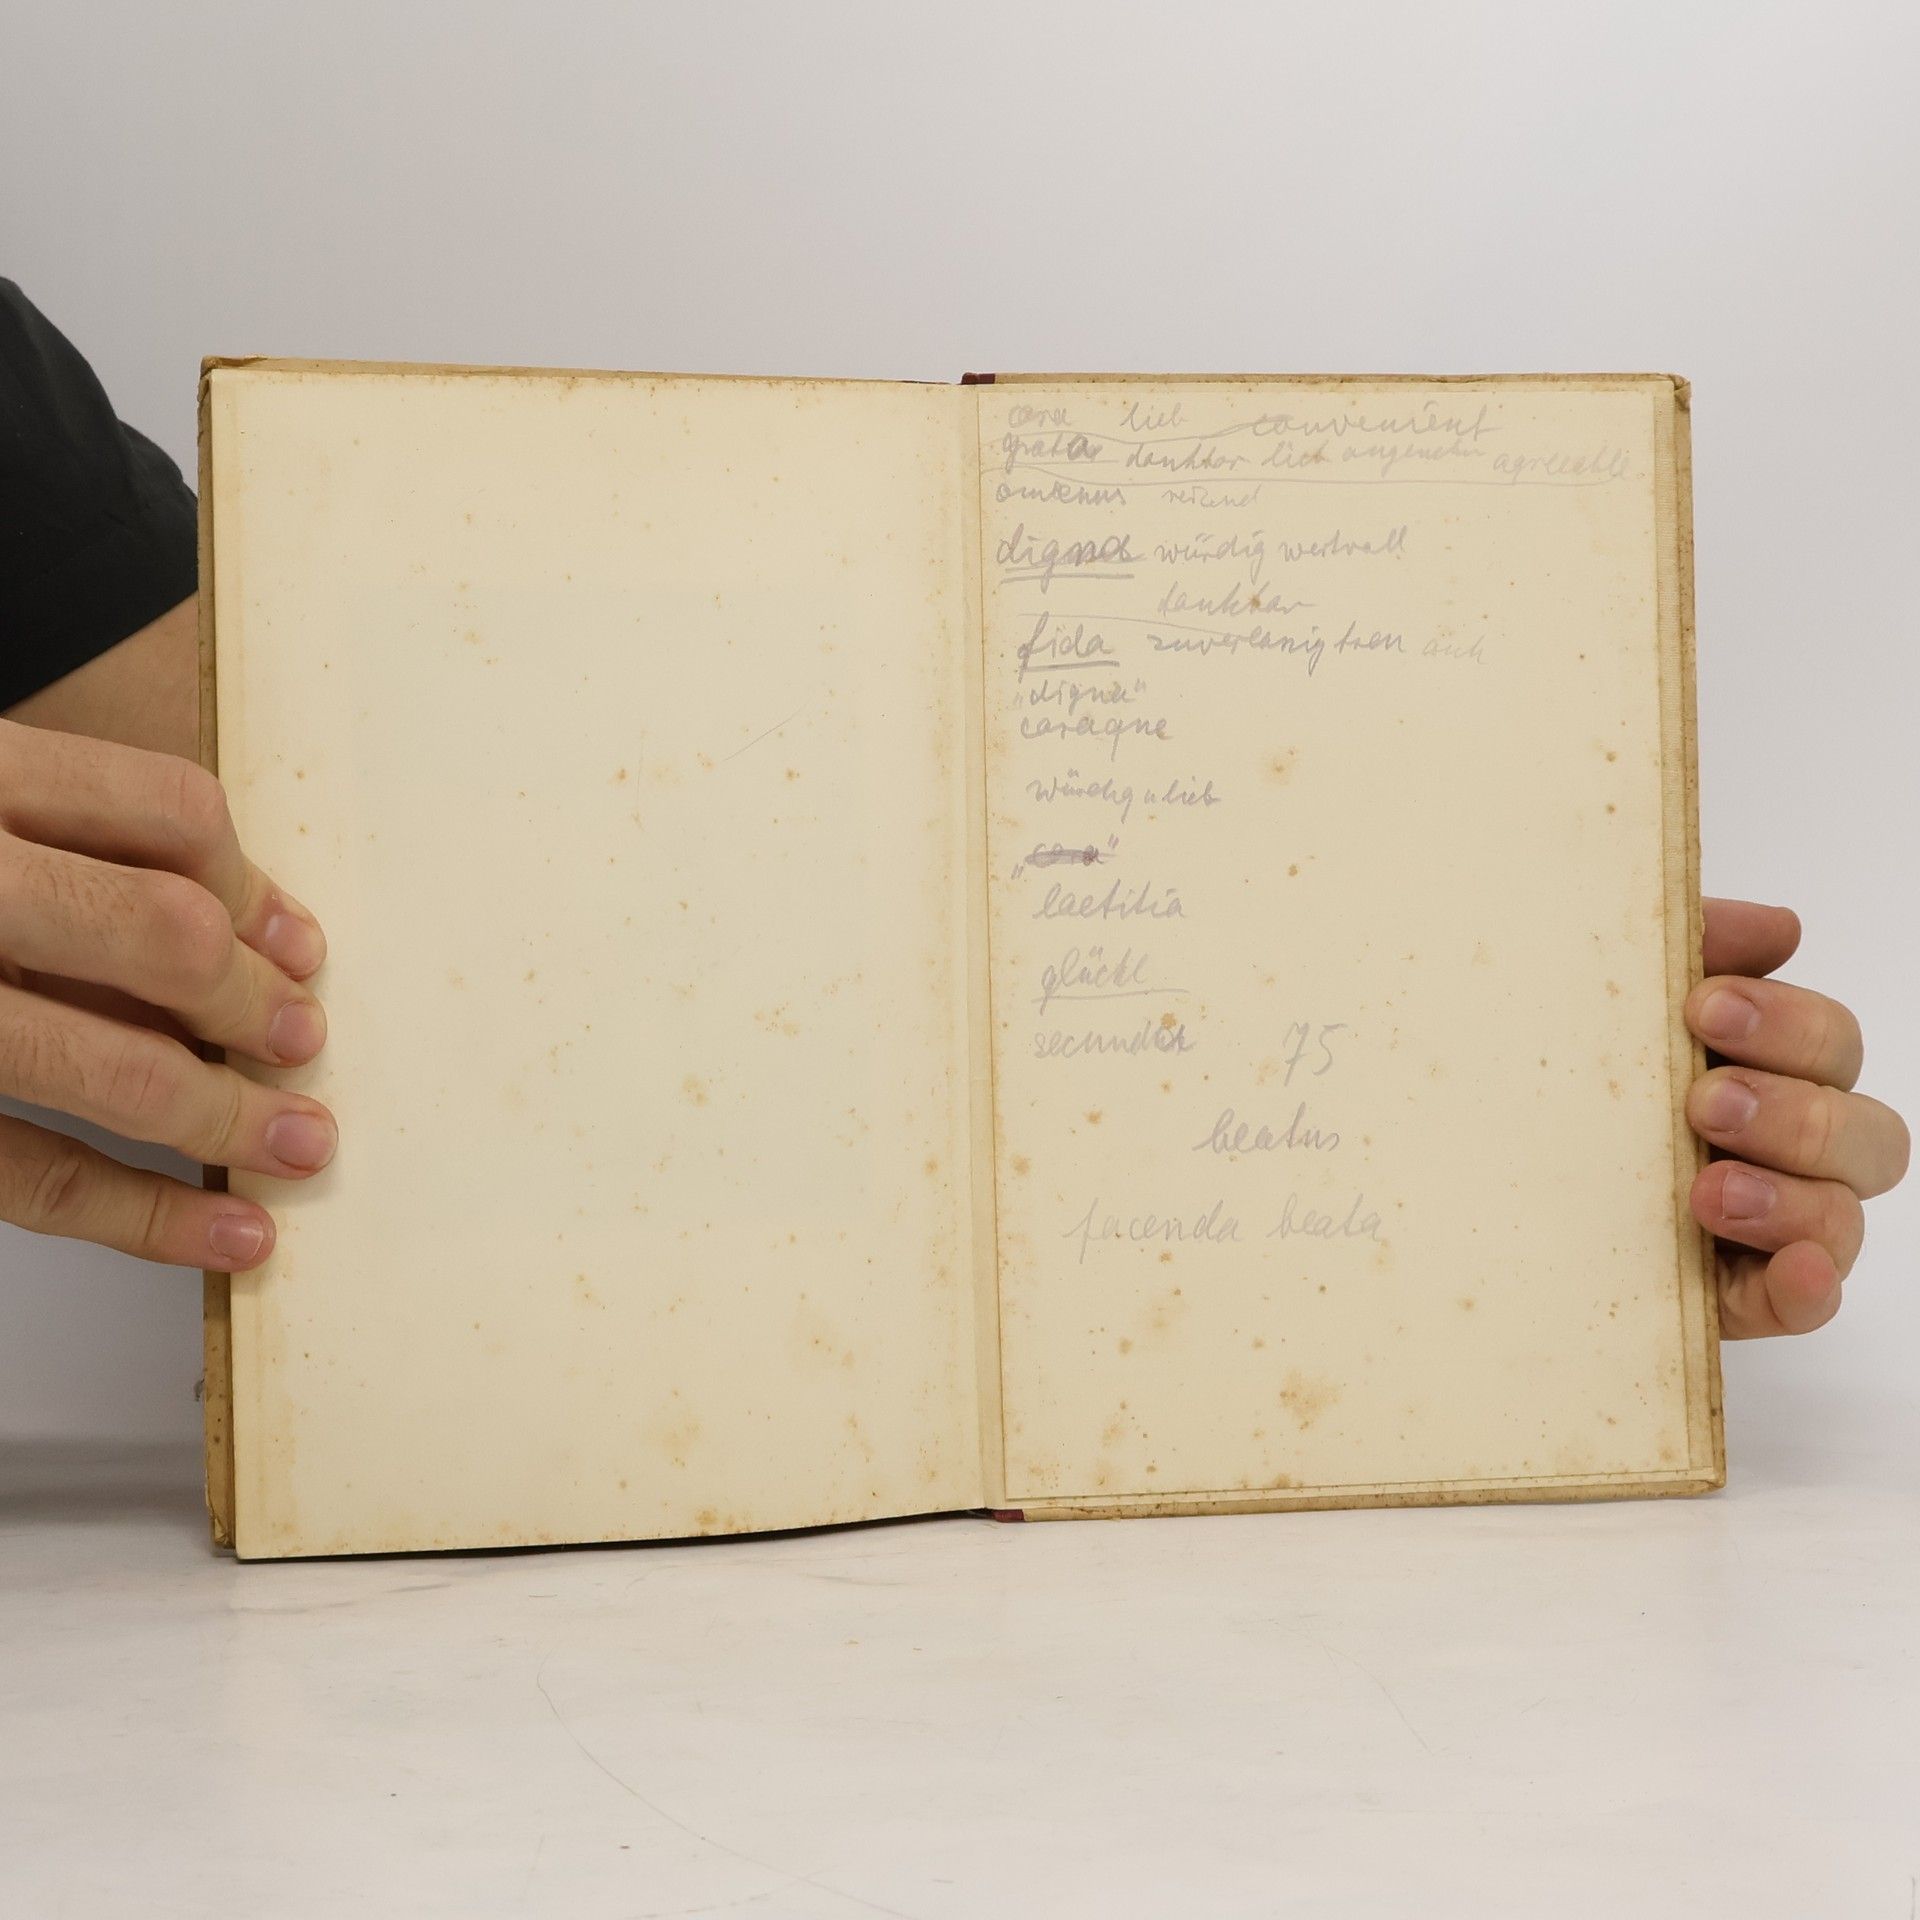 cara lieb convenient
grata dankbar lieb angenehm agreeable
amoenus reizend
digna würdig wertvoll
dankbar
fida zuverlässig treu auch
„digna"
caraque
würdig u lieb
„cara"
laetitia
glückl.
secunda 75
beatus
facenda beata